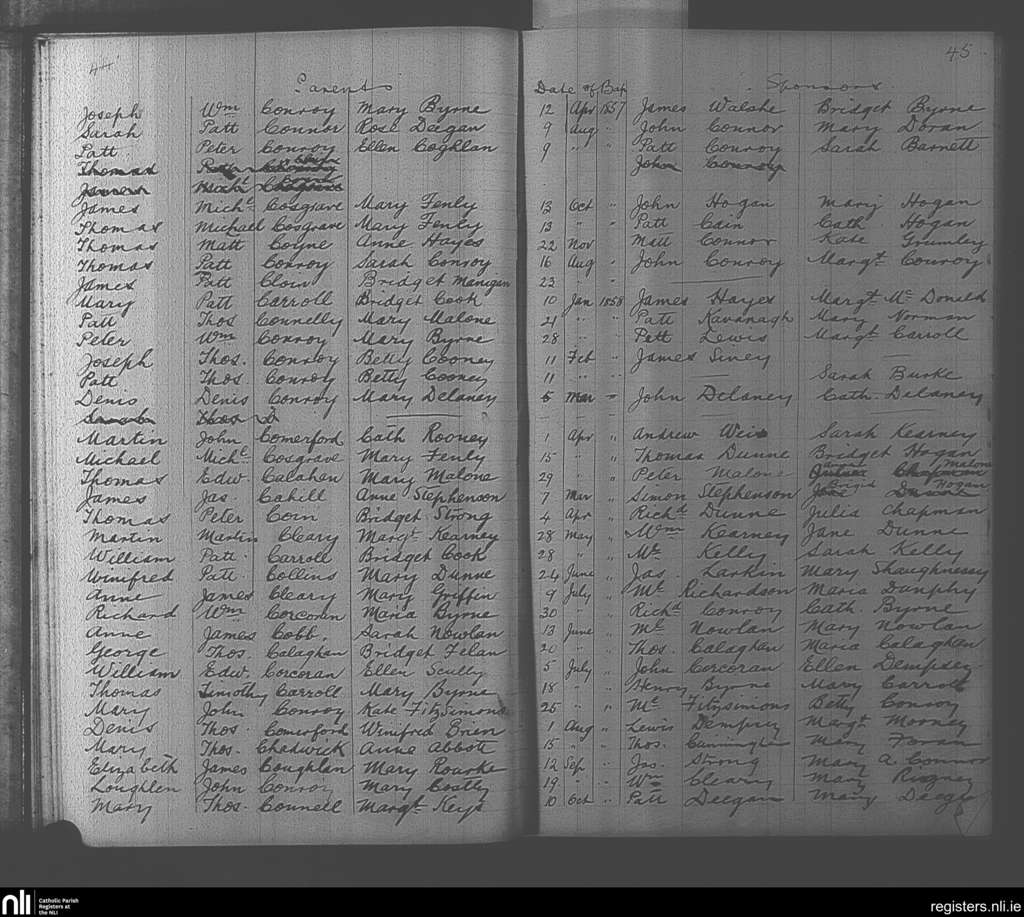 44 45
Parents Date of Bap Sponsors
Joseph Wm Conroy Mary Byrne 12 Apr 1857 James Walshe Bridget Byrne
Sarah Patt Connor Rose Deegan 9 Aug " John Connor Mary Doran
Patt Peter Conroy Ellen Coghlan 9 " " Patt Conroy Sarah Barnett
Thomas John Conroy
James Michl Cosgrave
James Michl Cosgrave Mary Fenly 13 Oct " John Hogan Mary Hogan
Thomas Michael Cosgrave Mary Fenly 13 " " Patt Cain Cath. Hogan
Thomas Matt Coyne Anne Hayes 22 Nov " Matt Connor Kate Grumley
Thomas Patt Conroy Sarah Conroy 16 Aug " John Conroy Margt Conroy
James Patt Clow Bridget Manigan 23 " "
Mary Patt Carroll Bridget Cook 10 Jan 1858 James Hayes Margt McDonald
Patt Thos Connelly Mary Malone 21 " " Patt Kavanagh Mary Norman
Peter Wm Conroy Mary Byrne 28 " " Patt Lewis Margt Carroll
Joseph Thos. Conroy Betty Cooney 11 Feb " James Siney
Patt Thos. Conroy Betty Cooney 11 " " Sarah Burke
Denis Denis Conroy Mary Delaney 5 Mar " John Delaney Cath. Delaney
Sarah Thos D
Martin John Comerford Cath Rooney 1 Apr " Andrew Weir Sarah Kearney
Michael Michl Cosgrave Mary Fenly 15 " " Thomas Dunne Bridget Hogan
Thomas Edw. Calahan Mary Malone 29 " " Peter Malone Julia Chapman Malone
James Jas. Cahill Anne Stephenson 7 Mar " Simon Stephenson Jane Dunne Brigid Hogan
Thomas Peter Coin Bridget Strong 4 Apr " Richd Dunne Julia Chapman
Martin Martin Cleary Margt Kearney 28 May " Wm Kearney Jane Dunne
William Patt. Carroll Bridget Cook 28 " " Ml Kelly Sarah Kelly
Winifred Patt. Collins Mary Dunne 24 June " Jas. Larkin Mary Shaughnessy
Anne James Cleary Mary Griffin 9 July " Ml Richardson Maria Dunphy
Richard Wm Corcoran Maria Byrne 30 " " Richd Conroy Cath. Byrne
Anne James Cobb. Sarah Nowlan 13 June " Ml Nowlan Mary Nowlan
George Thos. Calaghan Bridget Felan 20 " " Thos. Calaghan Maria Calaghan
William Edw. Corcoran Ellen Scully 5 July " John Corcoran Ellen Dempsey
Thomas Timothy Carroll Mary Byrne 18 " " Henry Byrne Mary Carroll
Mary John Conroy Kate FitzSimons 25 " " Ml Fitzsimons Betty Conroy
Denis Thos. Comerford Winifred Brien 1 Aug " Lewis Dempsy Margt Mooney
Mary Thos. Chadwick Anne Abbott 15 " " Thos. Cunningham Mary Foran
Elizabeth James Coughlan Mary Rourke 12 Sep " Jas. Strong Mary A. Connor
Loughlen John Conroy Mary Costly 19 " " Wm Cleary Mary Rigney
Mary Thos. Connell Margt Keys 10 Oct " Patt Deegan Mary Deegan
nli Catholic Parish
Registers at
the NLI
registers.nli.ie